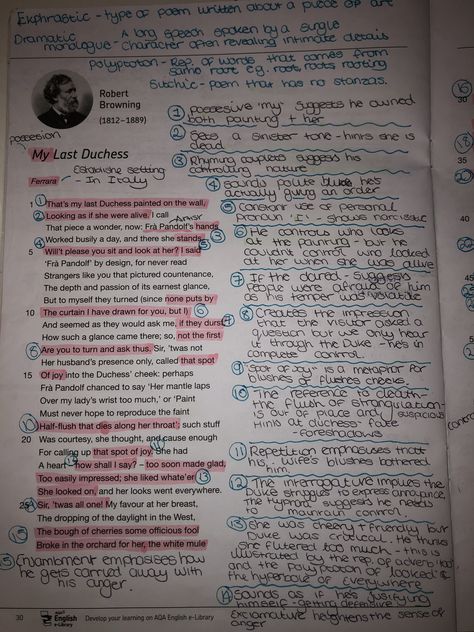 Ekphrastic - type of poem written about a piece of art
Dramatic monologue - A long speech spoken by a single character often revealing intimate details
Polyptoton - Rep. of words that comes from same root e.g. root, roots rooting
Stichic - poem that has no stanzas.
Robert
Browning
(1812–1889)
possession
My Last Duchess
Establishes setting
Ferrara - In Italy
That's my last Duchess painted on the wall,
Looking as if she were alive. I call
Artist
That piece a wonder, now: Frà Pandolf's hands
Worked busily a day, and there she stands.
5 Will't please you sit and look at her? I said
'Frà Pandolf' by design, for never read
Strangers like you that pictured countenance,
The depth and passion of its earnest glance,
But to myself they turned (since none puts by
10 The curtain I have drawn for you, but I)
And seemed as they would ask me, if they durst,
How such a glance came there; so, not the first
Are you to turn and ask thus. Sir, 'twas not
Her husband's presence only, called that spot
15 Of joy into the Duchess' cheek: perhaps
Frà Pandolf chanced to say 'Her mantle laps
Over my lady's wrist too much,' or 'Paint
Must never hope to reproduce the faint
Half-flush that dies along her throat'; such stuff
20 Was courtesy, she thought, and cause enough
For calling up that spot of joy. She had
A heart – how shall I say? – too soon made glad,
Too easily impressed; she liked whate'er
She looked on, and her looks went everywhere.
25 Sir, 'twas all one! My favour at her breast,
The dropping of the daylight in the West,
The bough of cherries some officious fool
Broke in the orchard for her, the white mule
15 Enjambment emphasises how
he gets carried away with
his anger.
1 Possessive 'my' suggests he owned
both painting + her
2 Sets a sinister tone - hints she is
dead
3 Rhyming couplets suggest his
controlling nature
4 Sounds polite but he's
actually giving an order
5 Constant use of personal
pronoun 'I' - shows narcissistic
6 He controls who looks
at the painting - but he
couldn't control who looked
at her when she was alive
7 If they dared - suggests
people were afraid of him
as his temper was volatile
8 Creates the impression
that the visitor asked a
question but we only hear
it through the Duke - he's in
complete control.
9 'Spot of Joy' - is a metaphor for
blushes or flushed cheeks.
10 The reference to death -
the flush of strangulation -
is out of place and suspicious
Hints at duchess' fate
- foreshadows
11 Repetition emphasises that
his wife's blushes bothered
him.
12 The interrogative implies the
Duke struggles to express annoyance,
the hyphens suggest he needs
to maintain control.
13 She was cheery + friendly but
Duke was critical. He thinks
she flirted too much - this is
illustrated by the rep. of adverb 'too'
and the polyptoton of 'looked' +
the hyperbole of 'everywhere'
14 Sounds as if he's justifying
himself - getting defensive
Exclamative heightens the sense of
anger
30
AQA
English
e-Library
Develop your learning on AQA English e-Library
30
35
40